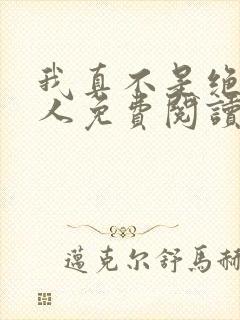 我真不是绝
人免費閱讀
邁克尔舒馬赫